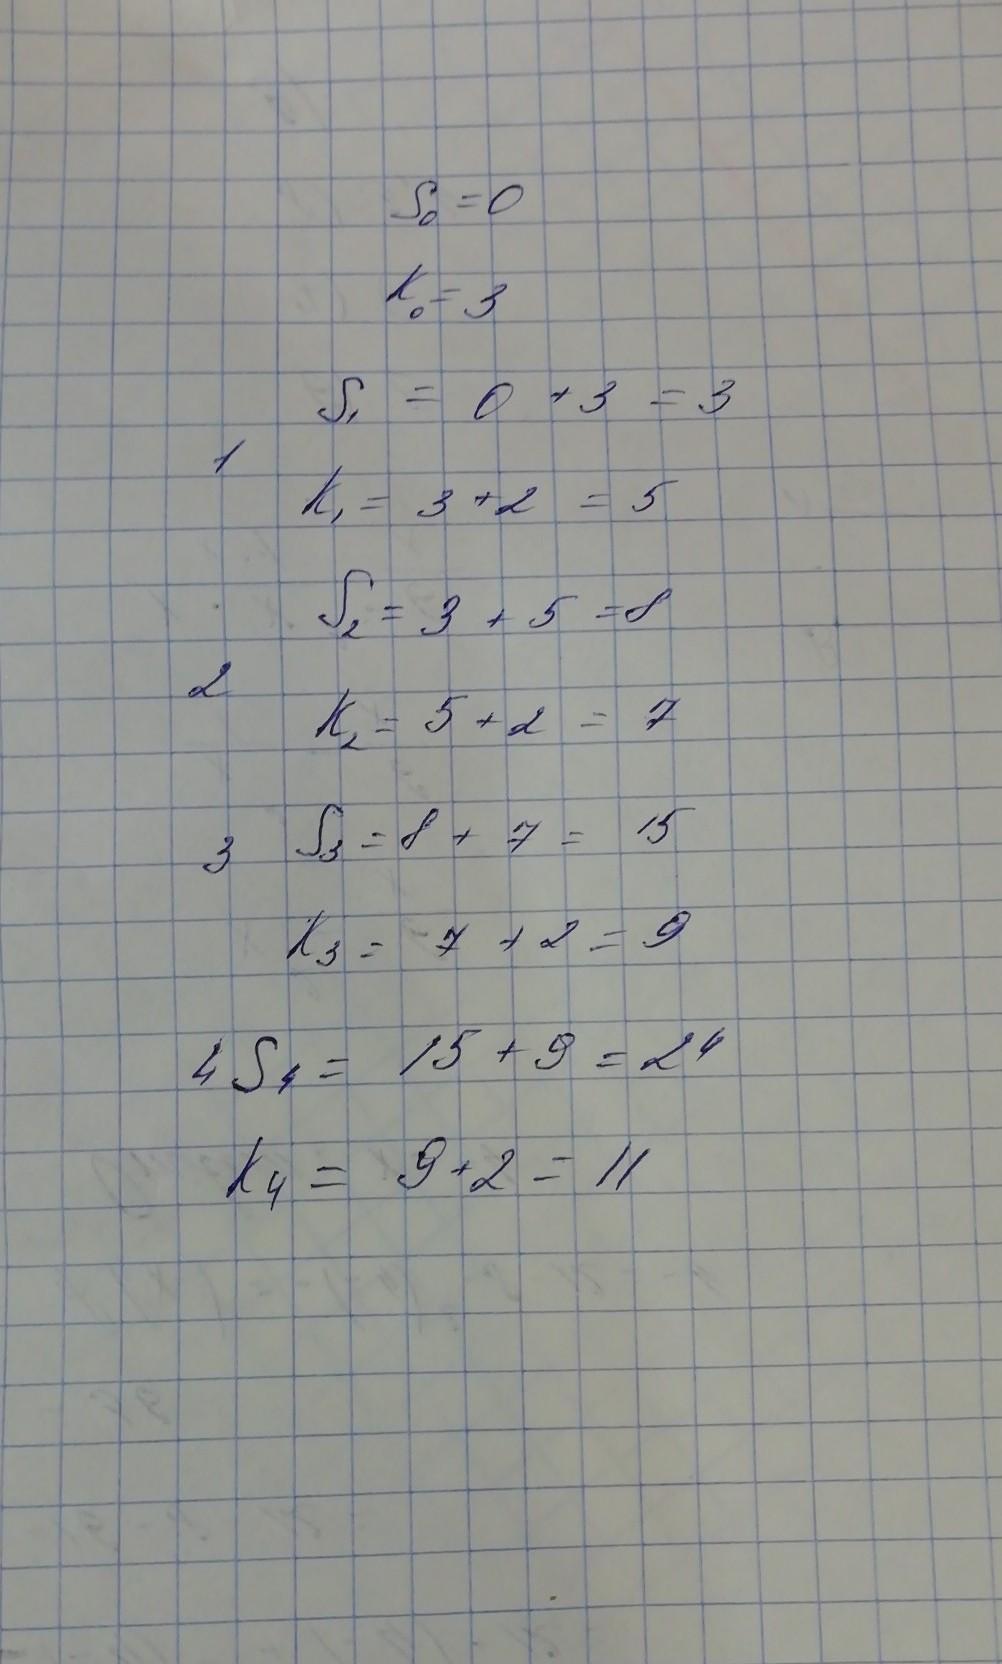 S₀ = 0
K₀ = 3
S₁ = 0 + 3 = 3
1
K₁ = 3 + 2 = 5
S₂ = 3 + 5 = 8
2
K₂ = 5 + 2 = 7
3 S₃ = 8 + 7 = 15
K₃ = 7 + 2 = 9
4 S₄ = 15 + 9 = 24
K₄ = 9 + 2 = 11